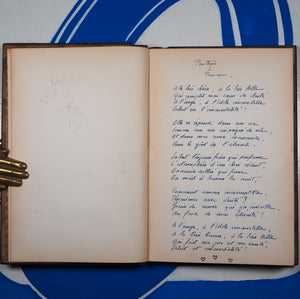 à
A la très chère, à la très belle
Qui remplit mon cœur de clarté
A l'ange, à l'idole immortelle,
Salut en l'immortalité !
Elle se répand dans ma vie
Comme un air imprégné de sel,
Et dans mon âme inassouvie
Verse le goût de l'éternel.
Sachet toujours frais qui parfume
L'atmosphère d'un cher réduit,
Encensoir oublié qui fume
En secret à travers la nuit,
Comment amour incorruptible,
T'exprimer avec vérité ?
Grain de musc qui gis, invisible,
Au fond de mon éternité !
A l'ange, à l'idole immortelle,
à la très bonne, à la très belle
Qui fait ma joie et ma santé,
Salut en l'immortalité !